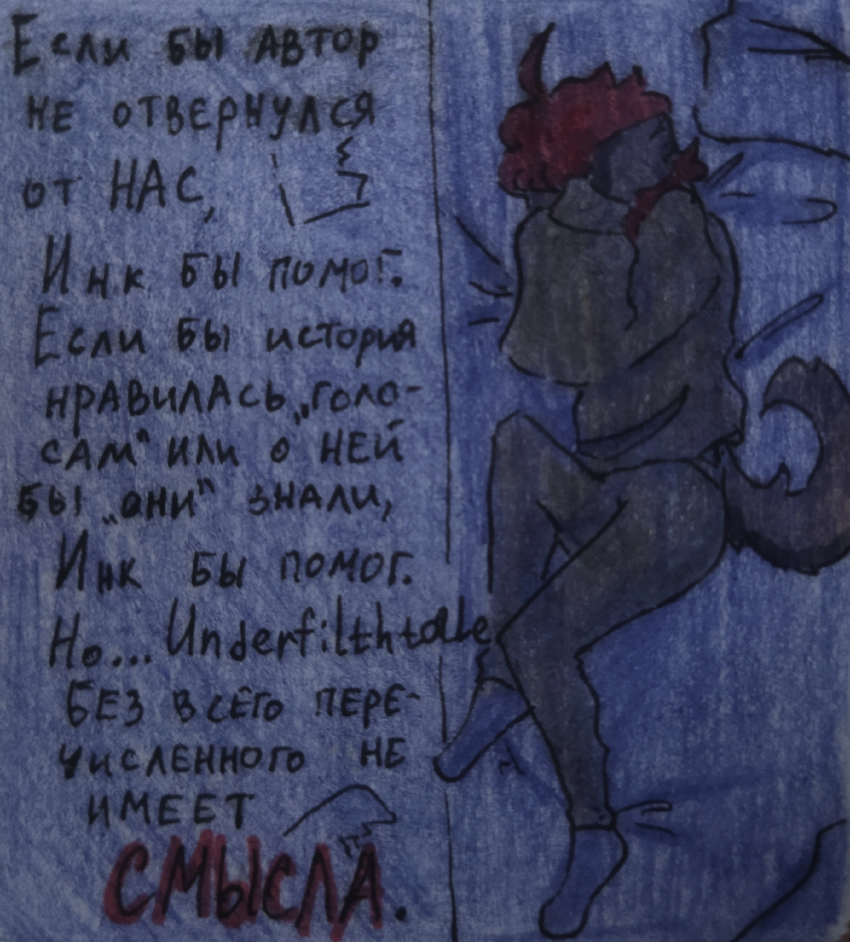 Если бы автор
не отвернулся
от НАС,
Инк бы помог.
Если бы история
нравилась „голо-
сам“ или о ней
бы „они“ знали,
Инк бы помог.
Но... Underfilthtale
без всего пере-
численного не
имеет
СМЫСЛА.